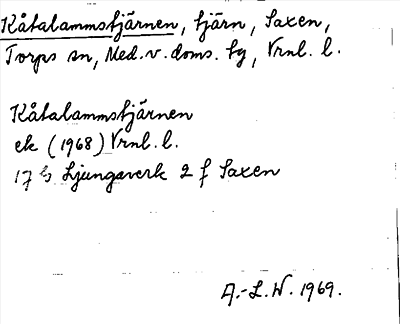 Kåtalammstjärnen, tjärn, Saxen,
Torps sn, Med.v.doms. tg, Vrnl. l.
Kåtalammstjärnen
ek (1968) Vrnl. l.
17 Ljungaverk 2 f Saxen
A.-L.W. 1969.